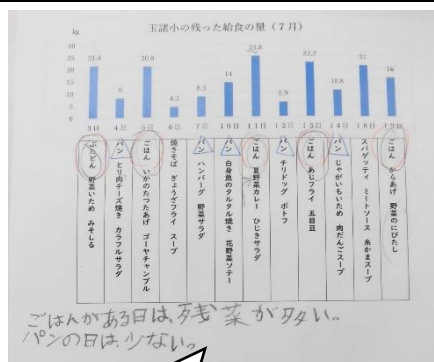 玉諸小の残った給食の量（7月）
kg
30
25
20
15
10
5
0
21.4
8
20.8
4.5
8.3
14
25.8
5.9
22.2
10.8
21
16
3日
4日
5日
6日
7日
10日
11日
12日
13日
14日
18日
19日
ぶたどん 野菜いため みそしる
パン とり肉チーズ焼き カラフルサラダ
ごはん いかのたつたあげ ゴーヤチャンプル
焼きそば ぎょうざフライ スープ
パン ハンバーグ 野菜サラダ
パン 白身魚のタルタル焼き 花野菜ソテー
ごはん 夏野菜カレー ひじきサラダ
パン チリドッグ ポトフ
ごはん あじフライ 五目豆
パン じゃがいもいため 肉だんごスープ
スパゲッティ ミートソース 糸かまスープ
ごはん からあげ 野菜のにびたし
ごはんがある日は、残菜が多い。
パンの日は、少ない。